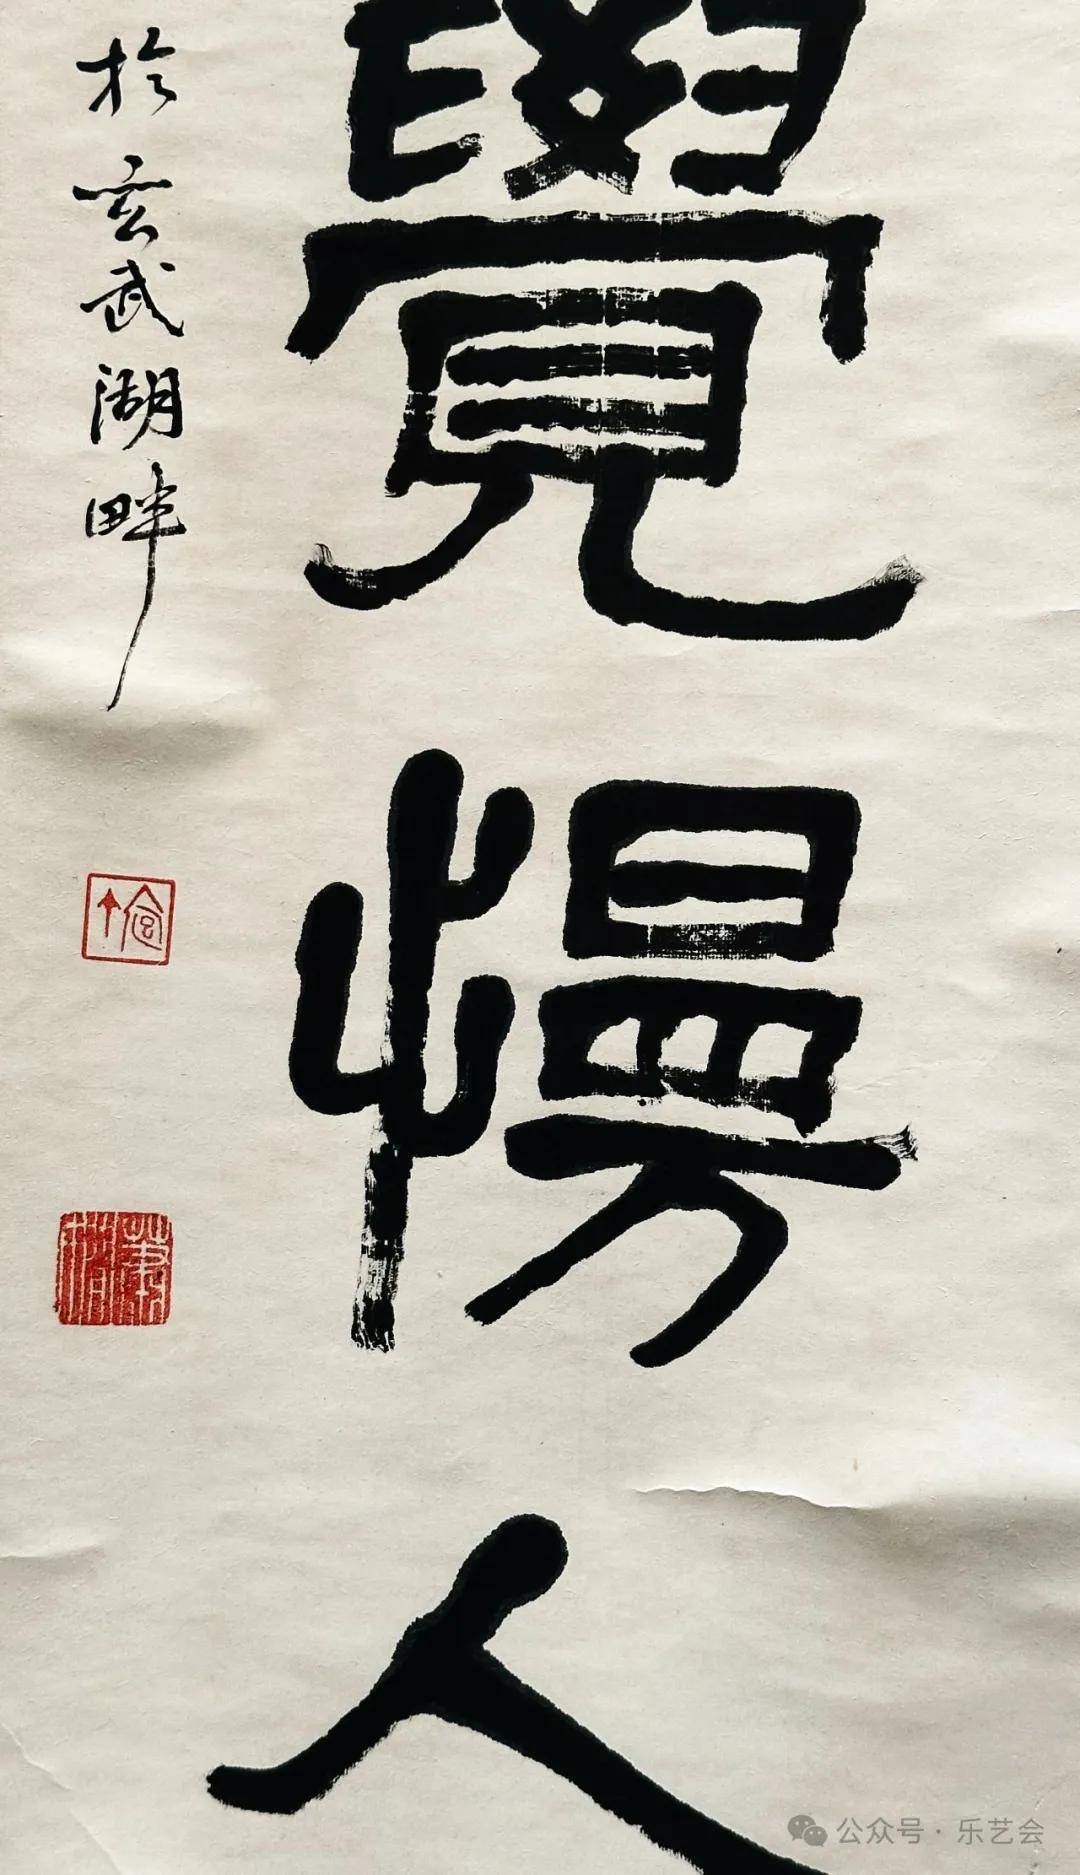 覺慢人
於玄武湖畔
公众号·乐艺会